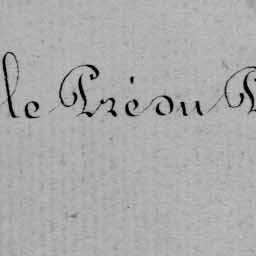 le Pré ou P